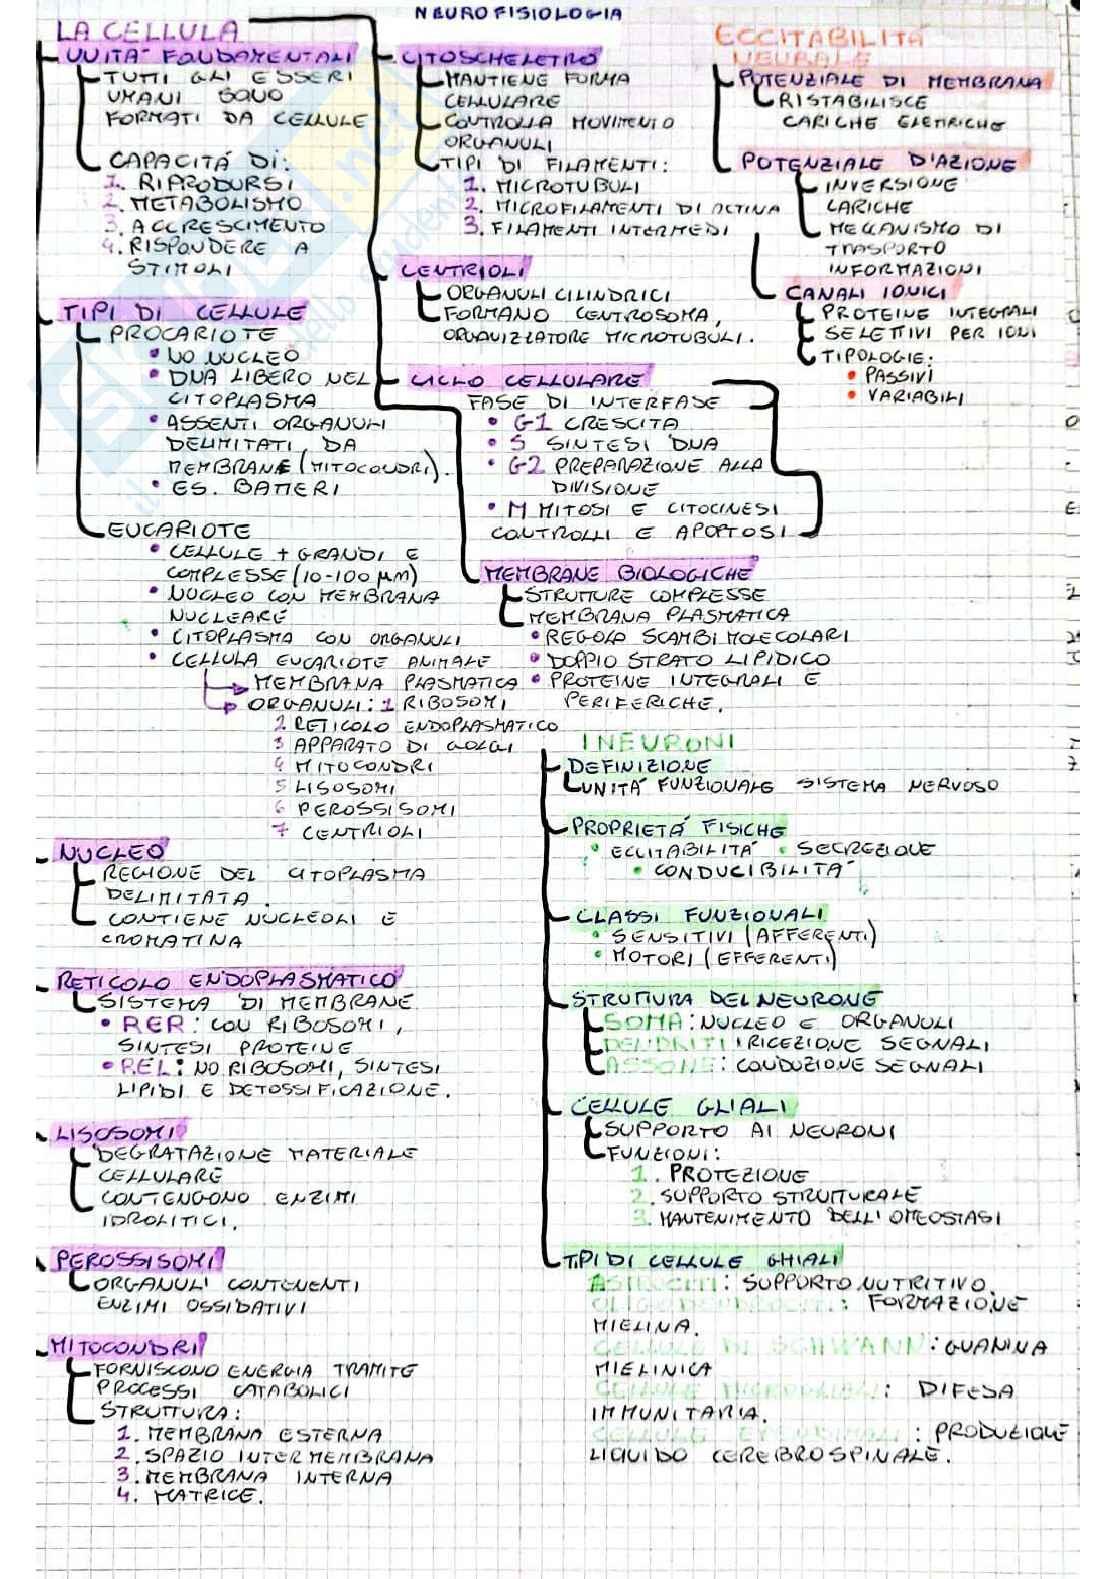 NEUROFISIOLOGIA
LA CELLULA
UNITA' FONDAMENTALI
TUTTI GLI ESSERI
UMANI SONO
FORMATI DA CELLULE
CAPACITÁ DI:
1. RIPRODURSI
2. METABOLISMO
3. ACCRESCIMENTO
4. RISPONDERE A
STIMOLI
TIPI DI CELLULE
PROCARIOTE
• NO NUCLEO
• DNA LIBERO NEL
CITOPLASMA
• ASSENTI ORGANULI
DELIMITATI DA
MEMBRANE (MITOCONDRI).
• ES. BATTERI
EUCARIOTE
• CELLULE + GRANDI E
COMPLESSE (10-100 μm)
• NUCLEO CON MEMBRANA
NUCLEARE
• CITOPLASMA CON ORGANULI
• CELLULA EUCARIOTE ANIMALE
MEMBRANA PLASMATICA
ORGANULI: 1 RIBOSOMI
2 RETICOLO ENDOPLASMATICO
3 APPARATO DI GOLGI
4 MITOCONDRI
5 LISOSOMI
6 PEROSSISOMI
7 CENTRIOLI
NUCLEO
REGIONE DEL CITOPLASMA
DELIMITATA.
CONTIENE NUCLEOLI E
CROMATINA
RETICOLO ENDOPLASMATICO
SISTEMA DI MEMBRANE
• RER: CON RIBOSOMI,
SINTESI PROTEINE
• REL: NO RIBOSOMI, SINTESI
LIPIDI E DETOSSIFICAZIONE.
LISOSOMI
DEGRATAZIONE MATERIALE
CELLULARE
CONTENGONO ENZIMI
IDROLITICI.
PEROSSISOMI
ORGANULI CONTENENTI
ENZIMI OSSIDATIVI
MITOCONDRI
FORNISCONO ENERGIA TRAMITE
PROCESSI CATABOLICI
STRUTTURA:
1. MEMBRANA ESTERNA
2. SPAZIO INTERMEMBRANA
3. MEMBRANA INTERNA
4. MATRICE.
CITOSCHELETRO
MANTIENE FORMA
CELLULARE
CONTROLLA MOVIMENTO
ORGANULI
TIPI DI FILAMENTI:
1. MICROTUBULI
2. MICROFILAMENTI DI ACTINA
3. FILAMENTI INTERMEDI
CENTRIOLI
ORGANULI CILINDRICI
FORMANO CENTROSOMA,
ORGANIZZATORE MICROTUBULI.
CICLO CELLULARE
FASE DI INTERFASE
• G1 CRESCITA
• S SINTESI DNA
• G2 PREPARAZIONE ALLA
DIVISIONE
• M MITOSI E CITOCINESI
CONTROLLI E APOPTOSI
MEMBRANE BIOLOGICHE
STRUTTURE COMPLESSE
MEMBRANA PLASMATICA
• REGOLA SCAMBI MOLECOLARI
• DOPPIO STRATO LIPIDICO
• PROTEINE INTEGRALI E
PERIFERICHE.
I NEURONI
DEFINIZIONE
UNITÁ FUNZIONALE SISTEMA NERVOSO
PROPRIETÁ FISICHE
• ECCITABILITÁ • SECREZIONE
• CONDUCIBILITÁ
CLASSI FUNZIONALI
• SENSITIVI (AFFERENTI)
• MOTORI (EFFERENTI)
STRUTTURA DEL NEURONE
SOMA: NUCLEO E ORGANULI
DENDRITI: RICEZIONE SEGNALI
ASSONE: CONDUZIONE SEGNALI
CELLULE GLIALI
SUPPORTO AI NEURONI
FUNZIONI:
1. PROTEZIONE
2. SUPPORTO STRUTTURALE
3. MANTENIMENTO DELL'OMEOSTASI
TIPI DI CELLULE GHIALI
ASTROCITI: SUPPORTO NUTRITIVO.
OLIGODENDROCITI: FORMAZIONE
MIELINA.
CELLULE DI SCHWANN: GUANINA
MIELINICA
CELLULE MICROGLIALI: DIFESA
IMMUNITARIA.
CELLULE EPENDIMALI: PRODUZIONE
LIQUIDO CEREBROSPINALE.
ECCITABILITÁ
NEURALE
POTENZIALE DI MEMBRANA
RISTABILISCE
CARICHE ELETTRICHE
POTENZIALE D'AZIONE
INVERSIONE
CARICHE
MECCANISMO DI
TRASPORTO
INFORMAZIONI
CANALI IONICI
PROTEINE INTEGRALI
SELETTIVI PER IONI
TIPOLOGIE:
• PASSIVI
• VARIABILI